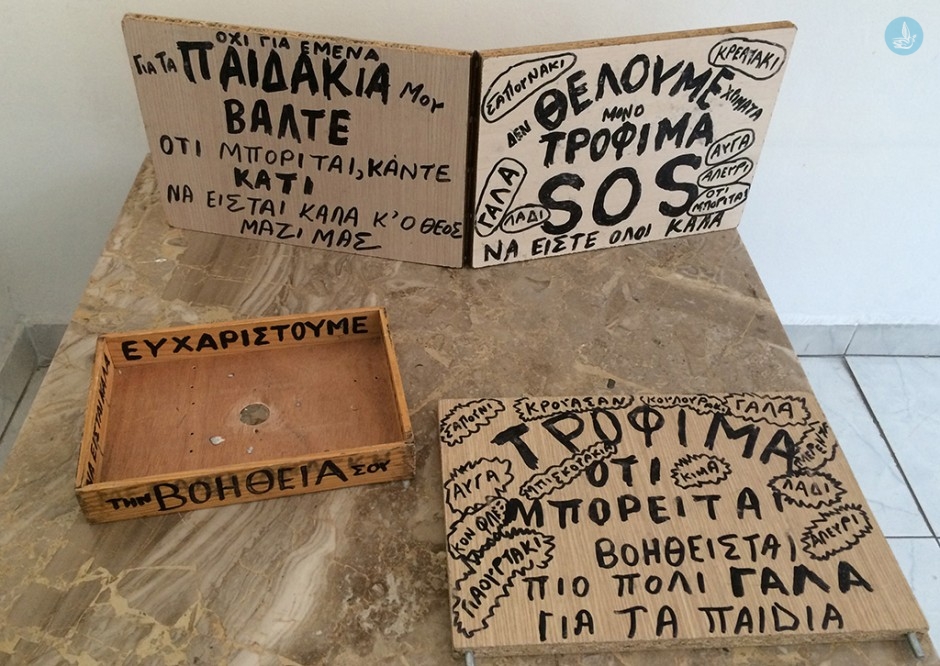 ΟΧΙ ΓΙΑ ΕΜΕΝΑ
ΓΙΑ ΤΑ ΠΑΙΔΑΚΙΑ ΜΟΥ
ΒΑΛΤΕ
ΟΤΙ ΜΠΟΡΙΤΑΙ, ΚΑΝΤΕ
ΚΑΤΙ
ΝΑ ΕΙΣΤΑΙ ΚΑΛΑ Κ'Ο ΘΕΟΣ
ΜΑΖΙ ΜΑΣ
ΣΑΠΟΥΝΑΚΙ
ΚΡΕΑΤΑΚΙ
ΔΕΝ ΘΕΛΟΥΜΕ ΧΡΙΜΑΤΑ
ΜΟΝΟ
ΤΡΟΦΙΜΑ
ΑΥΓΑ
ΑΛΕΥΡΙ
ΟΤΙ
ΜΠΟΡΙΤΑΙ
ΓΑΛΑ
ΛΑΔΙ
SOS
ΝΑ ΕΙΣΤΕ ΟΛΟΙ ΚΑΛΑ
ΕΥΧΑΡΙΣΤΟΥΜΕ
ΤΗΝ ΒΟΗΘΕΙΑ ΣΟΥ
ΣΑΠΟΥΝΙ
ΚΡΟΥΑΣΑΝ
ΚΟΥΛΟΥΡΑΚΙ
ΓΑΛΑ
ΤΡΟΦΙΜΑ
ΜΕΡΕΝΤΑ
ΑΥΓΑ
ΜΠΙΣΚΟΤΑΚΙΑ
ΟΤΙ
ΚΙΜΑ
ΛΑΔΙ
ΜΠΟΡΕΙΤΑΙ
ΚΟΝ ΦΛΕΞ
ΑΛΕΥΡΙ
ΓΙΑΟΥΡΤΑΚΙ
ΒΟΗΘΕΙΣΤΑΙ
ΠΙΟ ΠΟΛΙ ΓΑΛΑ
ΓΙΑ ΤΑ ΠΑΙDΙΑ